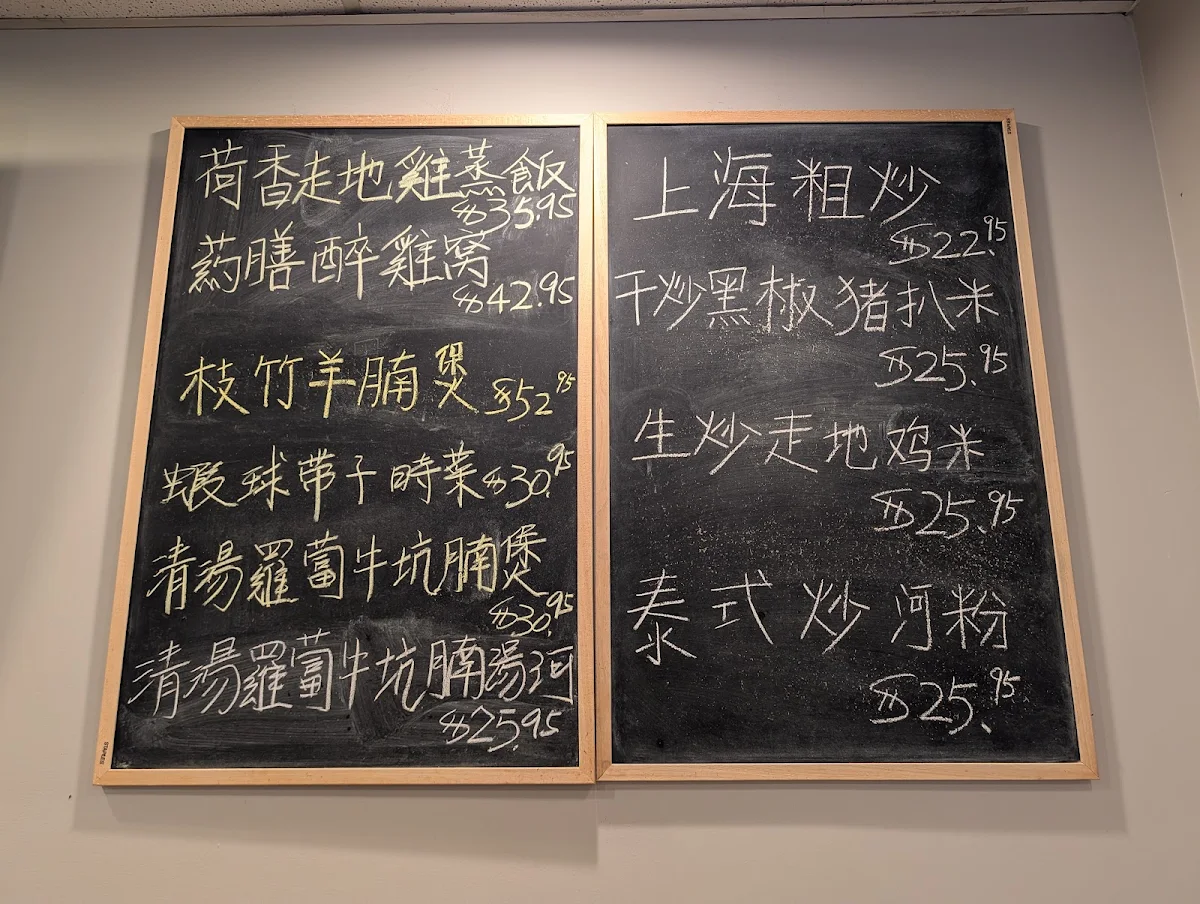 荷香走地雞蒸飯
$35.95
药膳醉雞窝
$42.95
枝竹羊腩煲 $52.95
蝦球带子時菜 $30.95
清湯羅蔔牛坑腩煲
$30.95
清湯羅蔔牛坑腩湯河
$25.95
上海粗炒
$22.95
干炒黑椒猪扒米
$25.95
生炒走地鸡米
$25.95
泰式炒河粉
$25.95
STAPLES